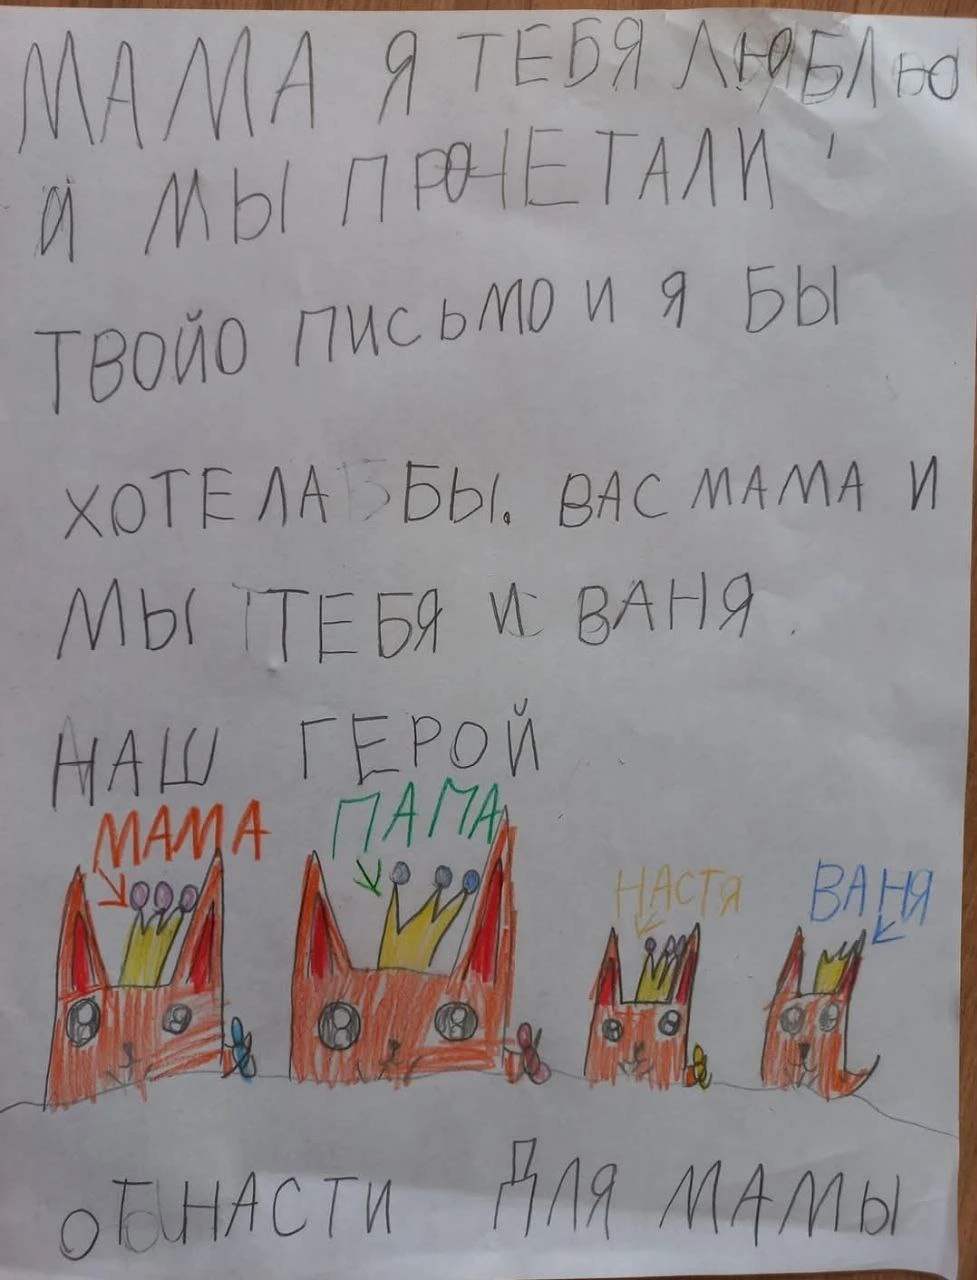 МАМА Я ТЕБЯ ЛЮБЛЮ
И МЫ ПРОЧЕТАЛИ
ТВОЙО ПИСЬМО И Я БЫ
ХОТЕЛА БЫ. ВАС МАМА И
МЫ ТЕБЯ И ВАНЯ.
НАШ ГЕРОЙ
МАМА ПАПА
НАСТЯ ВАНЯ
ОТ НАСТИ ДЛЯ МАМЫ